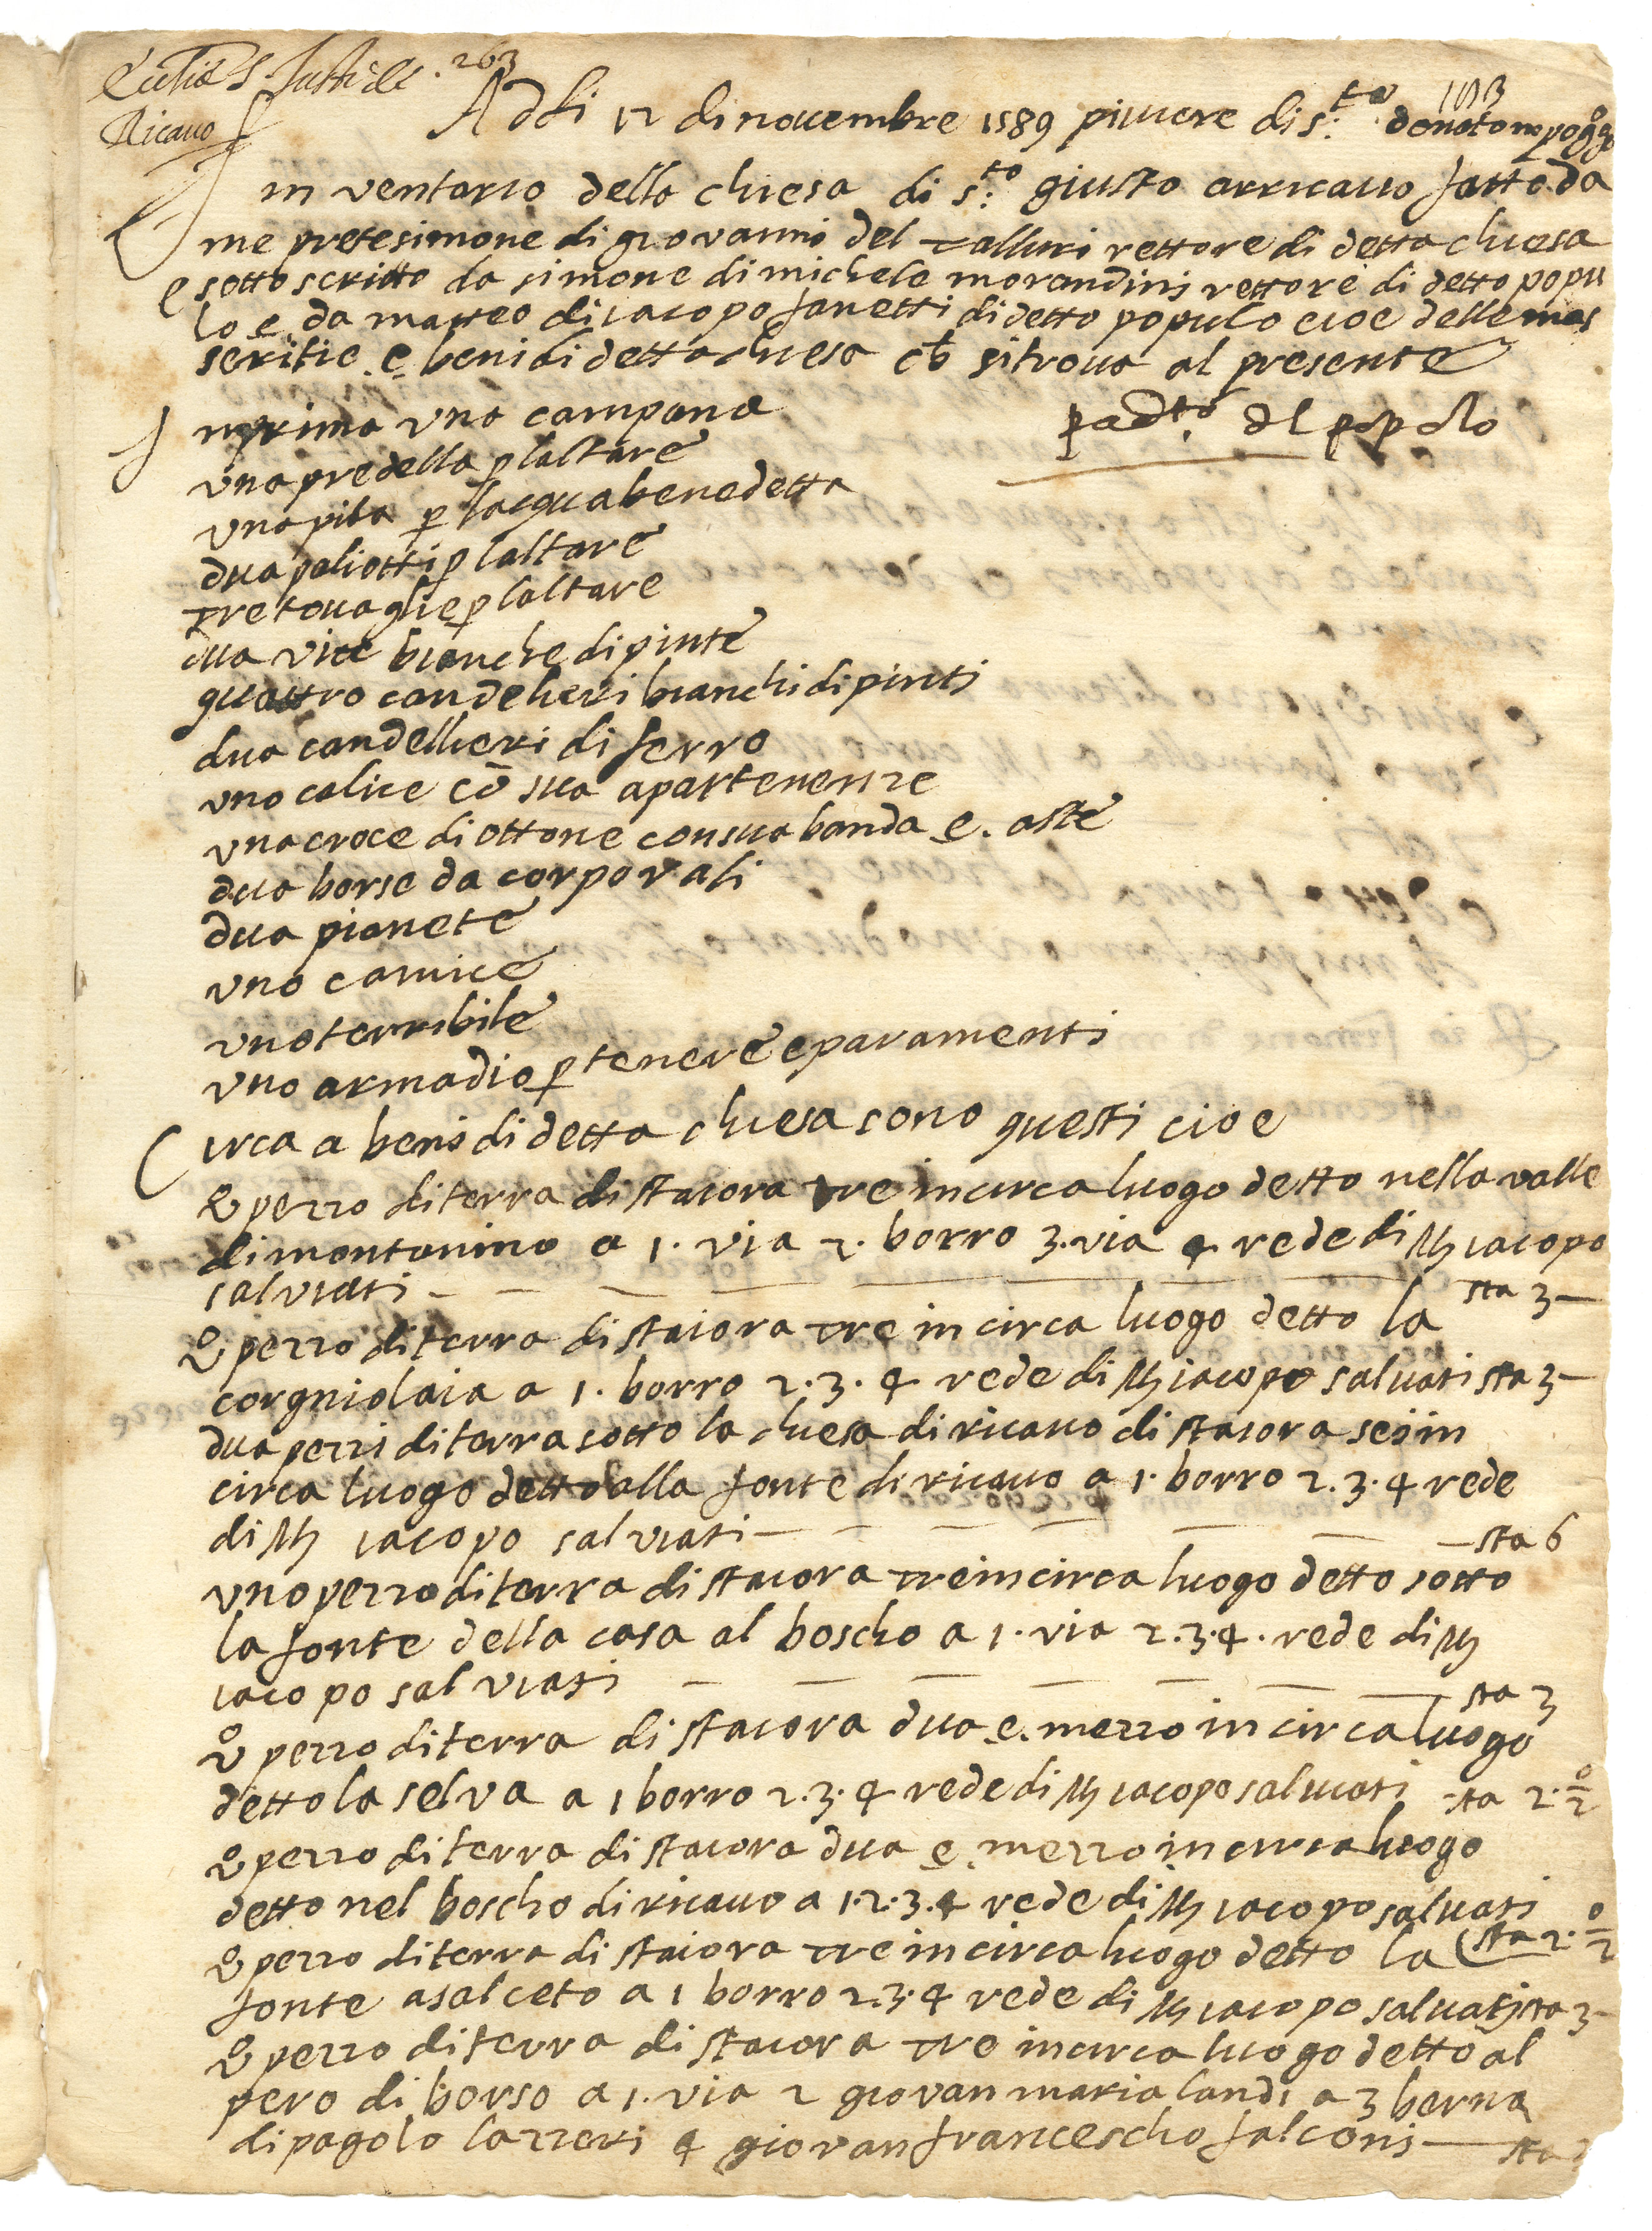 Ecclia S. Justi de . 263
Ricauo
1013
Adli 12 di nouembre 1589 piuiere di s:to donato inpoggo
Inventario della chiesa di s:to giusto arricauo fatto da
me prete simone di giovanni del talluri rettore di detta chiesa
e sotto scritto da simone di michele morandini rettore di detto popu
lo e da matteo di iacopo fanetti di detto populo cioe delle mas
seritie e beni di detta chiesa ch sitroua al presente
Inprima una campana
p ad.to dl popolo
una predella p laltare
una pila p lacqua benedetta
dua paliotti p laltare
tre touaglie p laltare
dua vite bianche dipinte
quattro candelieri bianchi dipinti
dua candellieri di ferro
uno calice cō sua apartenenze
una croce di ottone con sua banda e. aste
dua borse da corporali
dua pianete
uno camice
uno terribile
uno armadio p tenere e paramenti
Circa a beni di detta chiesa sono questi cioe
uo pezzo di terra di staiora tre incirca luogo detto nella valle
di montanino a 1. via 2. borro 3. via 4 rede di M iacopo
salviati - - - - - - - sta 3 —
uo pezzo di terra di staiora tre in circa luogo detto la
corgniolaia a 1. borro 2. 3. 4 rede di M iacopo salviati sta 3 —
dua pezzi di terra sotto la chiesa di ricauo di staiora sei in
circa luogo detto alla fonte di ricauo a 1. borro 2. 3. 4 rede
di M iacopo salviati - - - - - - sta 6
uno pezzo di terra di staiora tre incirca luogo detto sotto
la fonte della casa al boscho a 1. via 2. 3. 4. rede di M
iacopo salviati - - - - - - sta 3
uo pezzo di terra di staiora dua e. mezzo in circa luogo
detto la selva a 1 borro 2. 3. 4 rede di M iacopo salviati sta 2. o/2
uo pezzo di terra di staiora dua e. mezzo in circa luogo
detto nel boscho di ricauo a 1. 2. 3. 4 rede di M iacopo salviati
sta 2. o/2
uo pezzo di terra di staiora tre in circa luogo detto la
fonte a salceto a 1 borro 2. 3. 4 rede di M iacopo salviati sta 3 —
uo pezzo di terra di staiora tre incirca luogo detto al
pero di borso a 1. via 2 giovan maria landi a 3 berna
di pagolo lazzeri 4 giovan francescho falconi — sta